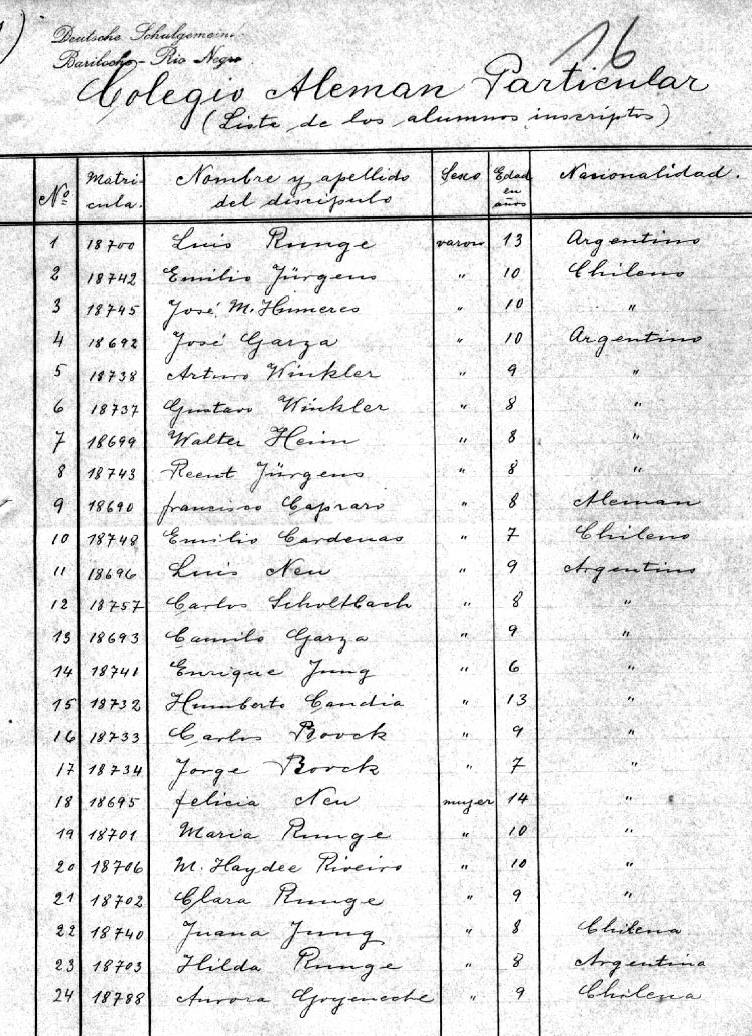 Deutsche Schulgemein
Bariloche - Rio Negro
16
Colegio Aleman Particular
(Liste de los alumnos inscriptos)
Nº Matri-cula. Nombre y apellido del discipulo Sexo Edad en años Nacionalidad.
1 18700 Luis Runge varon 13 Argentino
2 18742 Emilio Jürgens " 10 Chileno
3 18745 José M. Humeres " 10 "
4 18692 José Garza " 10 Argentino
5 18738 Arturo Winkler " 9 "
6 18737 Gustavo Winkler " 8 "
7 18699 Walter Heim " 8 "
8 18743 Jürgens " 8 "
9 18690 francisco Capraro " 8 Aleman
10 18748 Emilio Cardenas " 7 Chileno
11 18696 Luis Neu " 9 Argentino
12 18757 Carlos " 8 "
13 18693 Camilo Garza " 9 "
14 18741 Enrique Jung " 6 "
15 18732 Humberto Candia " 13 "
16 18733 Carlos Boock " 9 "
17 18734 Jorge Boock " 7 "
18 18695 felicia Neu mujer 14 "
19 18701 Maria Runge " 10 "
20 18706 M. Haydee Riveiro " 10 "
21 18702 Clara Runge " 9 "
22 18740 Juana Jung " 8 Chilena
23 18703 Hilda Runge " 8 Argentina
24 18788 Aurora Goyeneche " 9 Chilena